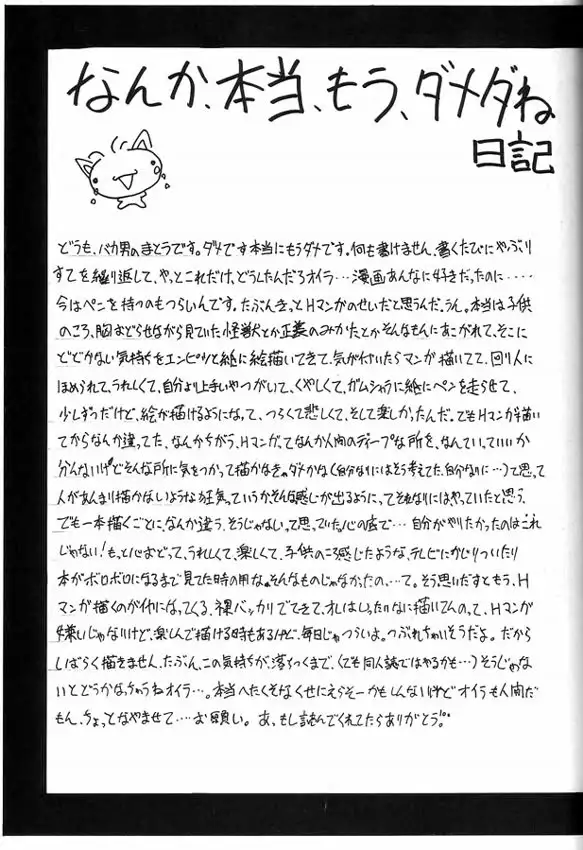 なんか、本当、もう、ダメダね
日記
どうも、バカ男のまとうです。ダメです本当にもうダメです。何も書けません、書くたびにやぶり
すてを繰り返して、やっとこれだけ、どうしたんだろオイラ…漫画あんなに好きだったのに……
今はペンを持つのもつらいんです。たぶんきっとHマンガのせいだと思うんだ。うん。本当は子供
のころ、胸おどらせながら見ていた怪獣とか正義のみかたとかそんなもんにあこがれて、そこに
とどかない気持ちをエンピツと紙に絵描いてきて、気が付いたらマンガ描いてて、回り人に
ほめられて、うれしくて、自分より上手いやつがいて、くやしくて、ガムシャラに紙にペンを走らせて
少しずつだけど、絵が描けるようになって、つらくて悲しくて、そして楽しかったんだ。でもHマンガ描い
てからなんか違ってた、なんかちがう、Hマンガってなんか人間のディープな所を、なんていっていいか
分んないけどそんな所に気をつかって描かなきゃダメかな(自分なりにはそう考えてた、自分なりに…)て思って
人があんまり描かないような狂気っていうか、そんな感じが出るようにってそれなりにはやっていたと思う、
でも一本描くごとに、なんか違う、そうじゃないって思っていた。心の底で…自分がやりたかったのはこれ
じゃない!もっと心おどって、うれしくて、楽しくて、子供のころ感じたような、テレビにかじりついたり
本がボロボロになるまで見てた時の用な。そんなものじゃなかったの…て。そう思いだすともう、H
マンガ描くのがイヤになってくる、裸バッカリでてきて、オレはいったいなに描いてんのって、Hマンガ
嫌いじゃないけど、楽しんで描ける時もあるけど、毎日じゃつらいよ。つぶれちゃいそうだよ。だから
しばらく描きません、たぶん、この気持ちが、落ちつくまで、(でも同人誌ではやるかも…)そうじゃな
いとどうかなっちゃうねオイラ…。本当へたくそなくせにえらそーかもしんないけどオイラも人間だ
もん、ちょっとなやませて…お願い。あ、もし読んでくれてたらありがとう!